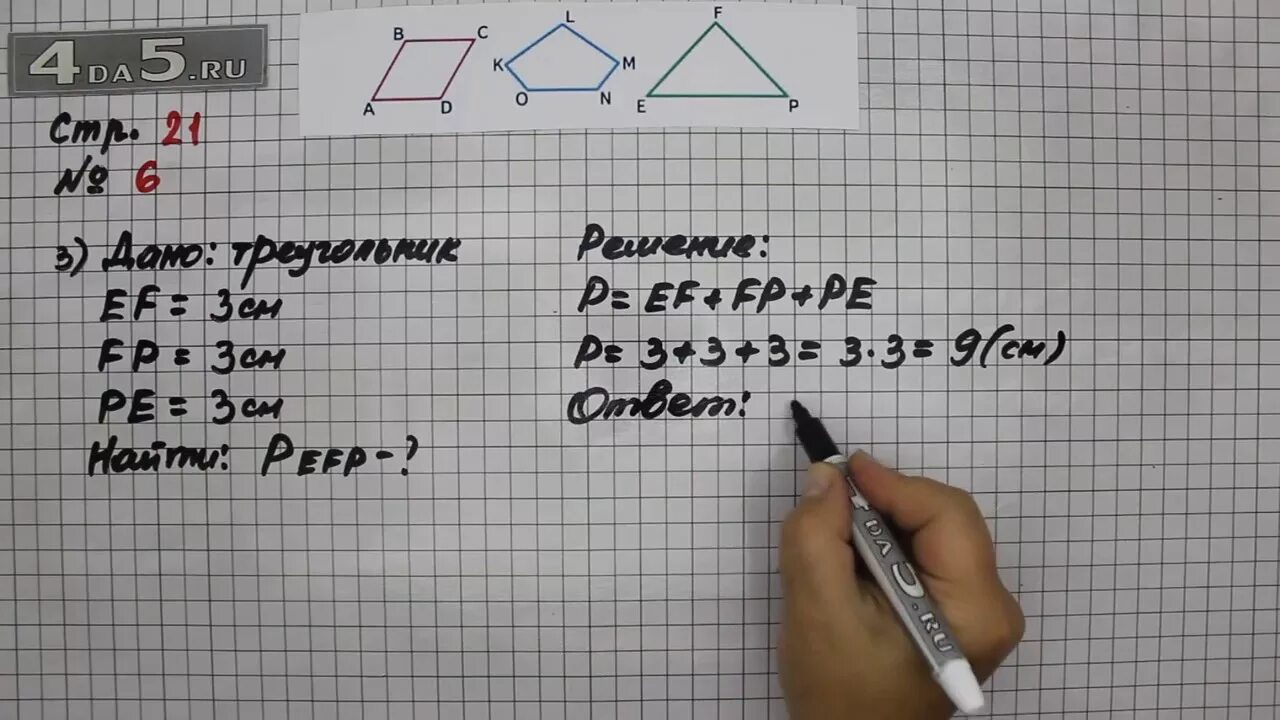 4DA5.RU
B C
A D
L
K M
O N
F
E P
Стр. 21
№ 6
3) Дано: треугольник
EF = 3 см
FP = 3 см
PE = 3 см
Найти: P EFP - ?
Решение:
P = EF + FP + PE
P = 3 + 3 + 3 = 3 · 3 = 9 (см)
Ответ:
4DA5.RU